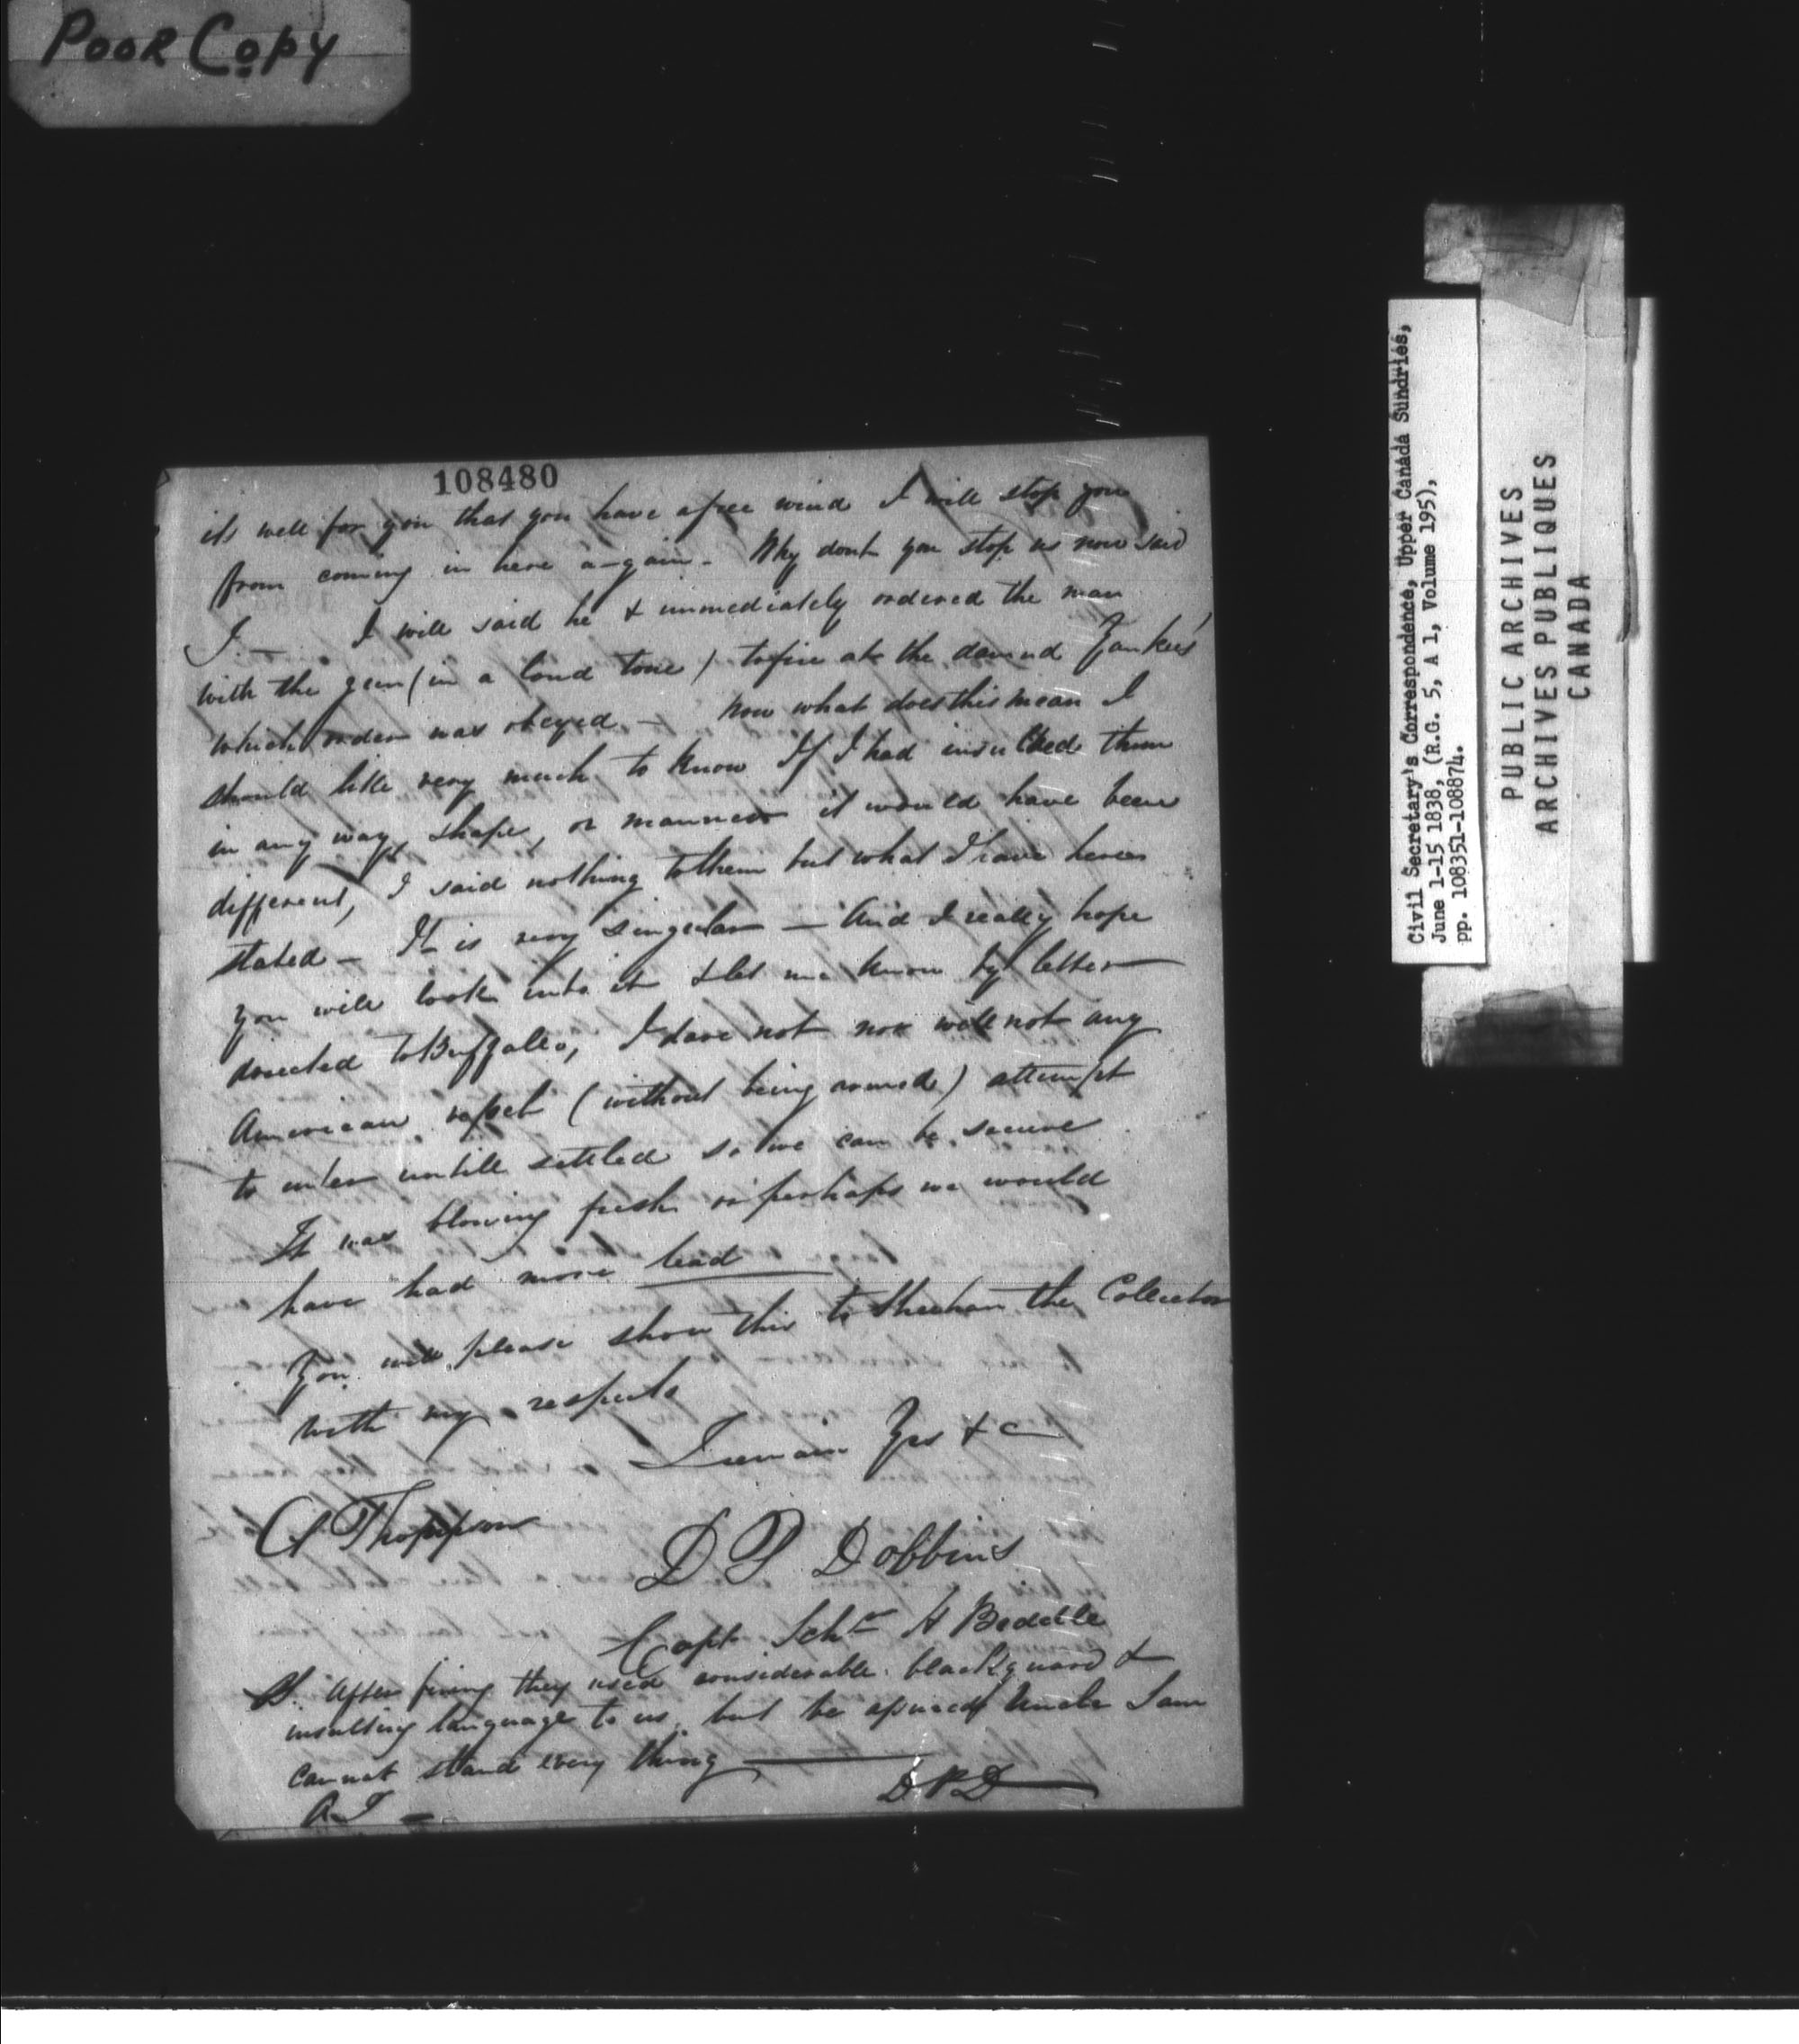 Poor Copy
108480
its well for you that you have a free wind I will stop you
from coming in here a-gain - Why dont you stop us now said
I - I will said he & immediately ordered the man
with the gun (in a loud tone) to fire at the damned Yankees
which order was obeyed - now what does this mean I
should like very much to know If I had insulted them
in any way, shape, or manner it would have been
different, I said nothing to them but what I have herein
stated - It is very singular - And I really hope
you will look into it & let me know by letter
directed to Buffalo, I dare not nor will not any
American vessel (without being armed) attempt
to enter untill settled so we can be secure
It was blowing fresh or perhaps we would
have had more lead
You will please show this to Sheehan the Collector
with my respects
I remain Yrs &c
A Thompson
D P Dobbins
Capt Schr A Beddle
PS. After firing they used considerable blackguard &
insulting language to us, but be assured Uncle Sam
cannot stand every thing
D P D
A T -
Civil Secretary's Correspondence, Upper Canada Sundries,
June 1-15 1838, (R.G. 5, A 1, Volume 195),
pp. 108351-108874.
PUBLIC ARCHIVES
ARCHIVES PUBLIQUES
CANADA